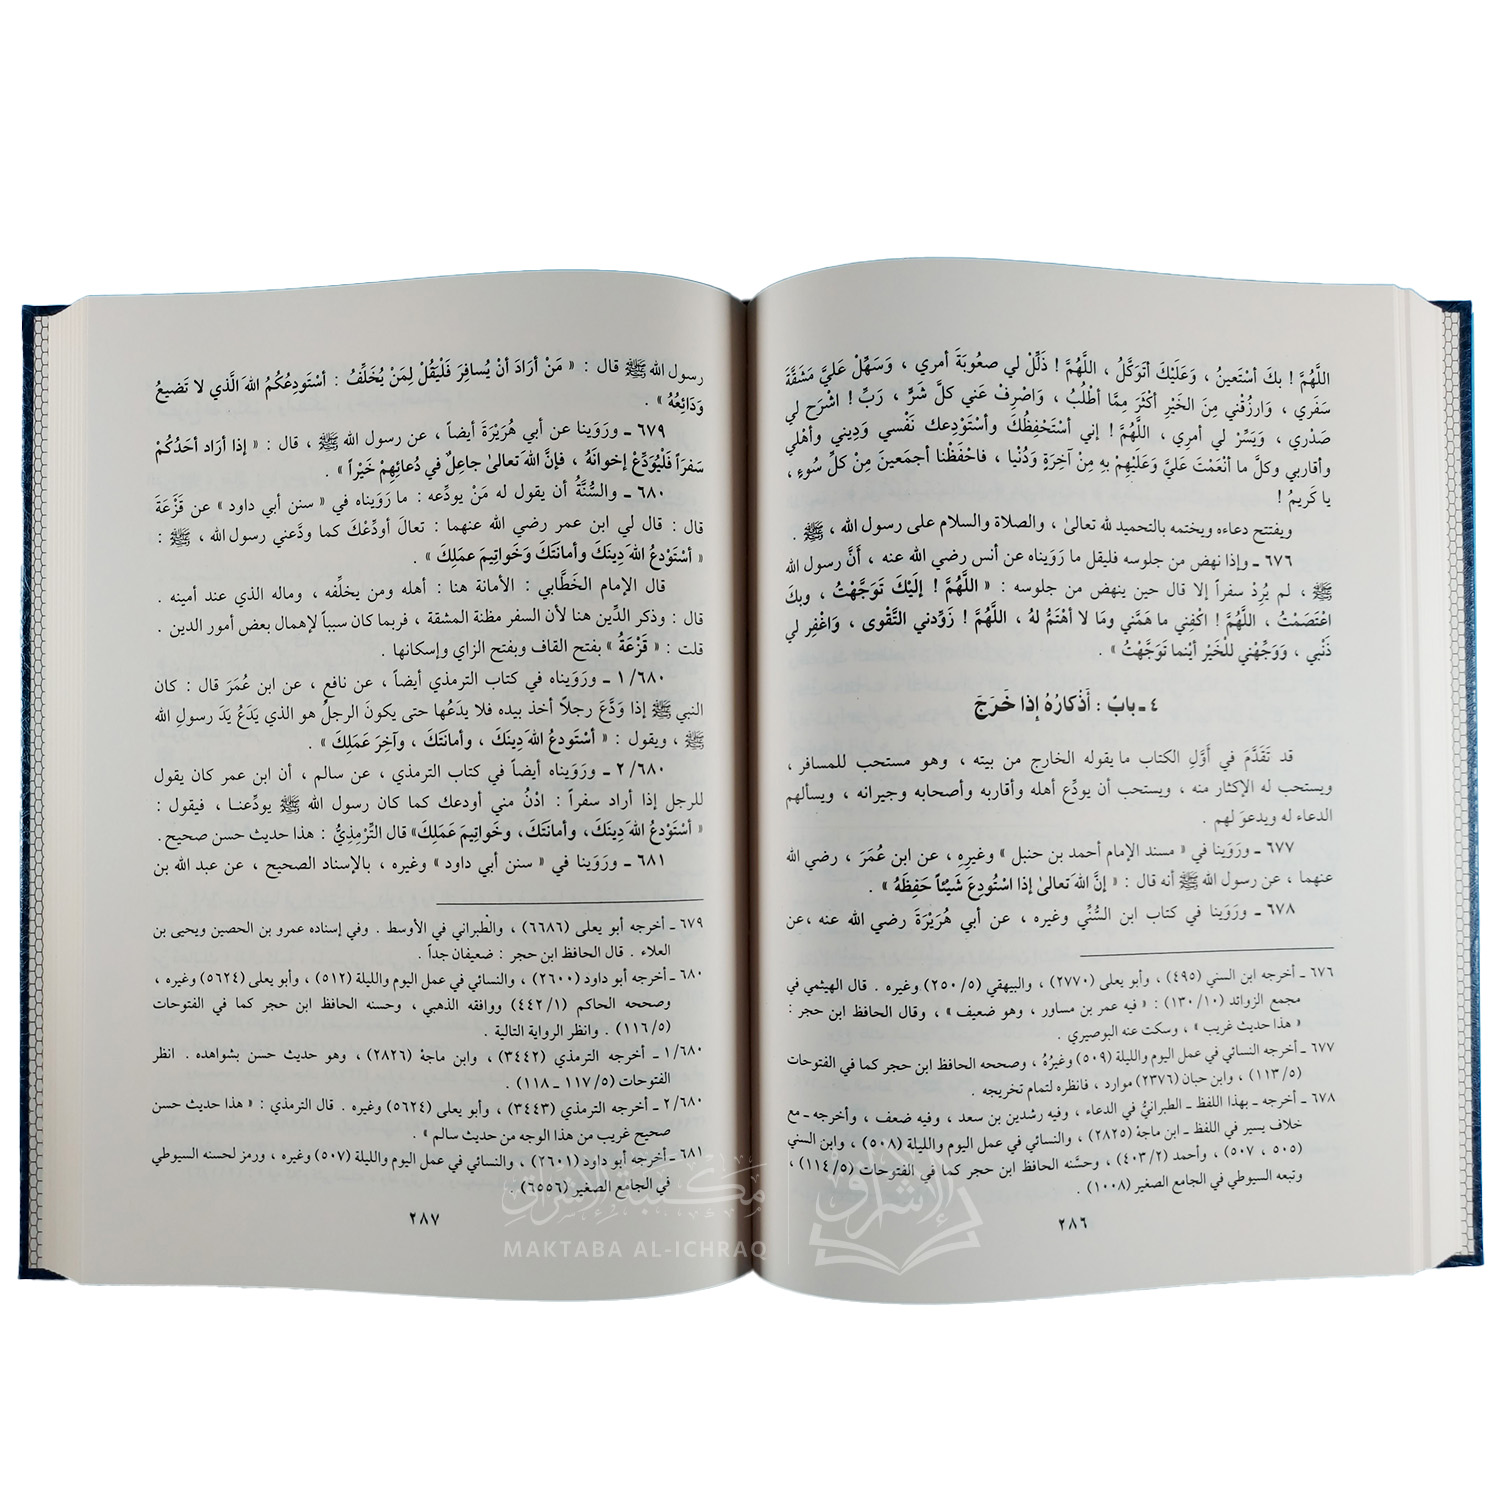 اللَّهُمَّ ! بكَ أسْتَعينُ ، وَعَلَيْكَ أتَوَكَّلُ ، اللَّهُمَّ ! ذَلِّلْ لي صعُوبَةَ أمري ، وَسَهِّلْ عَليَّ مَشَقَّةَ
سَفَري ، وَارزُقْني مِنَ الخَيْرِ أكْثَرَ مِمَّا أطْلُبُ ، وَاصْرِفْ عَني كلَّ شَرٍّ ، رَبِّ ! اشْرَح لي
صَدْري ، وَيَسِّرْ لي أمري ، اللَّهُمَّ ! إني أسْتَحْفِظُكَ وأسْتَوْدِعك نَفْسي وَدِيني وأهْلي
وأقاربي وكلَّ ما أنْعَمْتَ عَليَّ وَعَلَيْهِمْ بِهِ مِنْ آخِرَةٍ وَدُنْيا ، فاحْفَظْنا أجمَعينَ مِنْ كلِّ سُوءٍ ،
يا كَريمُ !
ويفتتح دعاءه ويختمه بالتحميد لله تعالىٰ ، والصلاة والسلام على رسول الله ، ﷺ .
٦٧٦ ـ وإذا نهض من جلوسه فليقل ما رَوَيناه عن أنس رضي الله عنه ، أَنَّ رسول الله
ﷺ ، لم يُرِدْ سفراً إلا قال حين ينهض من جلوسه : « اللَّهُمَّ ! إلَيْكَ تَوَجَّهْتُ ، وبكَ
اعْتَصَمْتُ ، اللَّهُمَّ ! اكْفِني ما هَمَّني ومَا لا أهْتَمُّ لهُ ، اللَّهُمَّ ! زَوِّدْني التَّقْوى ، وَاغْفِر لي
ذَنْبي ، وَوَجِّهْني للْخَيْرِ أيْنما تَوَجَّهْتُ » .
٤ ـ بابُ : أَذْكارُهُ إذا خَرَجَ
قد تَقَدَّمَ في أَوَّلِ الكتاب ما يقوله الخارج من بيته ، وهو مستحب للمسافر ،
ويستحب له الإكثار منه ، ويستحب أن يودِّع أهله وأقاربه وأصحابه وجيرانه ، ويسألهم
الدعاء له ويدعوَ لهم .
٦٧٧ ـ ورَوَينا في « مسند الإمام أحمد بن حنبل » وغيرِهِ ، عن ابن عُمَرَ ، رضي الله
عنهما ، عن رسول الله ﷺ أنه قال : « إنَّ اللهَ تَعالىٰ إذا اسْتُودِعَ شَيْئاً حَفِظَهُ » .
٦٧٨ ـ ورَوَينا في كتاب ابن السُّنِّي وغيره ، عن أبي هُرَيْرَةَ رضي الله عنه ،عن
٦٧٦ ـ أخرجه ابن السني (٤٩٥) ، وأبو يعلى (٢٧٧٠) ، والبيهقي (٢٥٠/٥) وغيره . قال الهيثمي في
مجمع الزوائد (١٣٠/١٠) : « فيه عمر بن مساور ، وهو ضعيف » ، وقال الحافظ ابن حجر :
« هذا حديث غريب » ، وسكت عنه البوصيري .
٦٧٧ ـ أخرجه النسائي في عمل اليوم والليلة (٥٠٩) وغيرُهُ ، وصححه الحافظ ابن حجر كما في الفتوحات
(١١٣/٥) ، وابن حبان (٢٣٧٦) موارد ، فانظره لتمام تخريجه .
٦٧٨ ـ أخرجه ـ بهذا اللفظ ـ الطبرانيُّ في الدعاء ، وفيه رشدين بن سعد ، وفيه ضعف ، وأخرجه ـ مع
خلاف يسير في اللفظ ـ ابن ماجة (٢٨٢٥) ، والنسائي في عمل اليوم والليلة (٥٠٨) ، وابن السني
(٥٠٥ ، ٥٠٧) ، وأحمد (٤٠٣/٢) ، وحسَّنه الحافظ ابن حجر كما في الفتوحات (١١٤/٥) ،
وتبعه السيوطي في الجامع الصغير (١٠٠٨) .
٢٨٦
رسول الله ﷺ قال : « مَنْ أرَادَ أنْ يُسافِرَ فَلْيَقُلْ لِمَنْ يُخَلِّفُ : أسْتَودِعُكُمُ اللهَ الَّذي لا تَضيعُ
وَدَائِعُهُ » .
٦٧٩ ـ ورَوَينا عن أبي هُرَيْرَةَ أيضاً ، عن رسول الله ﷺ ، قال : « إذا أرَاد أحَدُكُمْ
سَفَراً فَلْيُوَدِّعْ إخوانَهُ ، فإنَّ اللهَ تعالىٰ جاعِلٌ في دُعائِهِمْ خَيْراً » .
٦٨٠ ـ والسُّنَّةُ أن يقول له مَنْ يودِّعه : ما رَوَيناه في « سنن أبي داود » عن قَزَعَةَ
قال : قال لي ابن عمر رضي الله عنهما : تعالَ أودِّعْكَ كما ودَّعني رسول الله ، ﷺ :
« أسْتَوْدِعُ اللهَ دِينَكَ وأمانَتَكَ وَخَواتِيمَ عملِكَ » .
قال الإمام الخَطَّابي : الأمانة هنا : أهله ومن يخلِّفه ، وماله الذي عند أمينه .
قال : وذكر الدِّين هنا لأن السفر مظنة المشقة ، فربما كان سبباً لإهمال بعض أمور الدين .
قلت : « قَزَعَةُ » بفتح القاف وبفتح الزاي وإسكانها .
١/٦٨٠ ـ ورَوَيناه في كتاب الترمذي أيضاً ، عن نافعٍ ، عن ابن عُمَرَ قال : كان
النبي ﷺ إذا وَدَّعَ رجلاً أخذ بيده فلا يدَعُها حتى يكونَ الرجلُ هو الذي يَدَعُ يَدَ رسولِ الله
ﷺ ، ويقول : « أسْتَودعُ اللهَ دِينَكَ ، وأمانَتَكَ ، وآخِرَ عَمَلِكَ » .
٢/٦٨٠ ـ ورَوَيناه أيضاً في كتاب الترمذي ، عن سالم ، أن ابن عمر كان يقول
للرجل إذا أراد سفراً : ادْنُ مني أودعك كما كان رسول الله ﷺ يودِّعنا ، فيقول :
« أسْتَودعُ اللهَ دِينَكَ، وأمانَتَكَ، وخَواتِيمَ عَمَلِكَ» قال التِّرْمِذِيُّ : هذا حديث حسن صحيح .
٦٨١ ـ ورَوَينا في « سنن أبي داود » وغيره ، بالإسناد الصحيح ، عن عبد الله بن
٦٧٩ ـ أخرجه أبو يعلى (٦٦٨٦) ، والطبراني في الأوسط . وفي إسناده عمرو بن الحصين ويحيى بن
العلاء . قال الحافظ ابن حجر : ضعيفان جداً .
٦٨٠ ـ أخرجه أبو داود (٢٦٠٠) ، والنسائي في عمل اليوم والليلة (٥١٢) ، وأبو يعلى (٥٦٢٤) وغيره ،
وصححه الحاكم (٤٤٢/١) ووافقه الذهبي ، وحسنه الحافظ ابن حجر كما في الفتوحات
(١١٦/٥) . وانظر الرواية التالية .
١/٦٨٠ ـ أخرجه الترمذي (٣٤٤٢) ، وابن ماجة (٢٨٢٦) ، وهو حديث حسن بشواهده . انظر
الفتوحات (١١٧/٥ ـ ١١٨) .
٢/٦٨٠ ـ أخرجه الترمذي (٣٤٤٣) ، وأبو يعلى (٥٦٢٤) وغيره . قال الترمذي : « هذا حديث حسن
صحيح غريب من هذا الوجه من حديث سالم » .
٦٨١ ـ أخرجه أبو داود (٢٦٠١) ، والنسائي في عمل اليوم والليلة (٥٠٧) وغيره ، ورمز لحسنه السيوطي
في الجامع الصغير (٦٥٥٦) .
٢٨٧
مكتبة الإشراق
MAKTABA AL-ICHRAQ
الإشراق